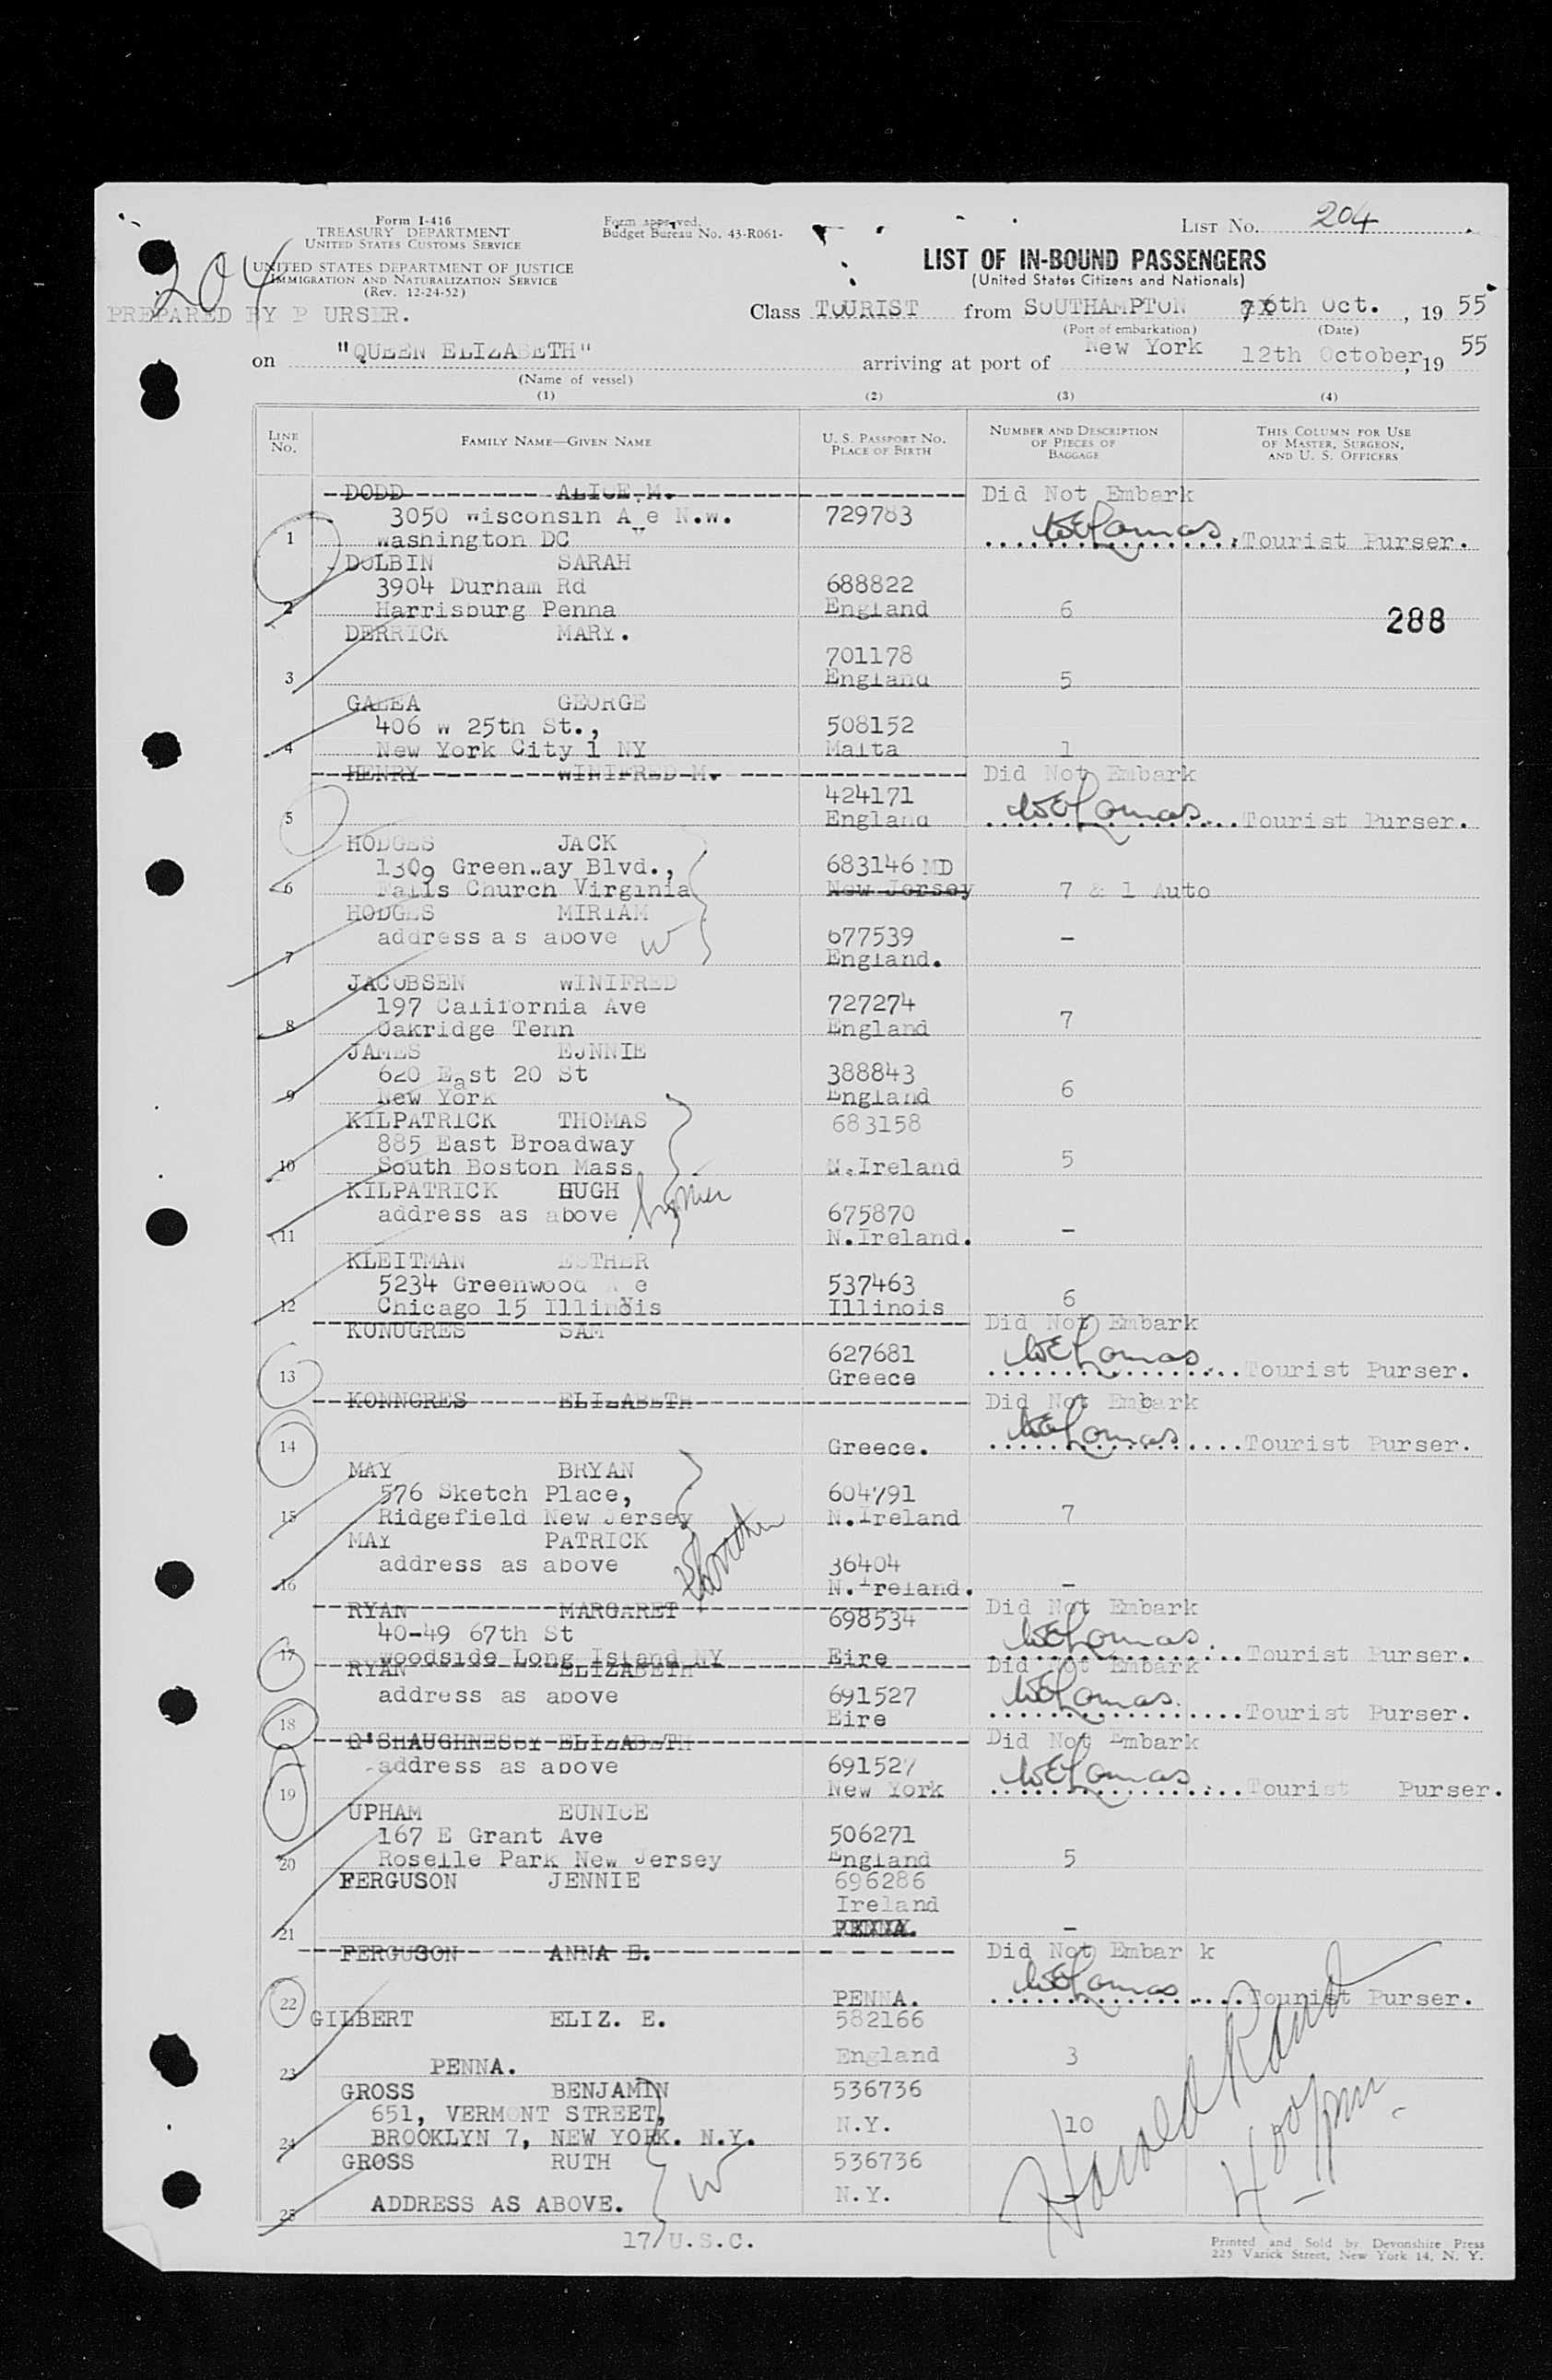 Form I-416
TREASURY DEPARTMENT
UNITED STATES CUSTOMS SERVICE
Form approved.
Budget Bureau No. 43-R061-
LIST NO. 204
204
UNITED STATES DEPARTMENT OF JUSTICE
IMMIGRATION AND NATURALIZATION SERVICE
(Rev. 12-24-52)
LIST OF IN-BOUND PASSENGERS
(United States Citizens and Nationals)
PREPARED BY P URSER.
Class TOURIST from SOUTHAMPTON 7th Oct., 19 55
(Port of embarkation) (Date)
on "QUEEN ELIZABETH" arriving at port of New York 12th October, 19 55
(Name of vessel)
(1) (2) (3) (4)
LINE NO. FAMILY NAME—GIVEN NAME U. S. PASSPORT NO. PLACE OF BIRTH NUMBER AND DESCRIPTION OF PIECES OF BAGGAGE THIS COLUMN FOR USE OF MASTER, SURGEON, AND U. S. OFFICERS
DODD ALICE.M. Did Not Embark
3050 Wisconsin A e N.W. 729763
1 Washington DC v WELomas Tourist Purser.
DOLBIN SARAH
3904 Durham Rd 688822
2 Harrisburg Penna England 6 288
DERRICK MARY.
701178
3 England 5
GALEA GEORGE
406 W 25th St., 508152
4 New York City 1 NY Malta 1
HENRY WINIFRED M. Did Not Embark
424171
5 England WELomas Tourist Purser.
HODGES JACK
1309 Greenway Blvd., 683146 MD
6 Falls Church Virginia New Jersey 7 & 1 Auto
HODGES MIRIAM
address as above W 677539 -
7 England.
JACOBSEN WINIFRED
197 California Ave 727274
8 Oakridge Tenn England 7
JAMES EJNNIE
620 East 20 St 388843
9 New York England 6
KILPATRICK THOMAS 683158
885 East Broadway
10 South Boston Mass. N.Ireland 5
KILPATRICK HUGH
address as above 675870
11 N.Ireland. -
KLEITMAN ESTHER
5234 Greenwood A e 537463
12 Chicago 15 Illinois Illinois 6
KONUGRES SAM Did Not Embark
627681
13 Greece WELomas Tourist Purser.
KONNGRES ELIZABETH Did Not Embark
14 Greece. WELomas Tourist Purser.
MAY BRYAN
576 Sketch Place, 604791
15 Ridgefield New Jersey N.Ireland 7
MAY PATRICK
address as above 36404
16 N.Ireland. -
RYAN MARGARET 698534 Did Not Embark
40-49 67th St
17 Woodside Long Island NY Eire WELomas Tourist Purser.
RYAN ELIZABETH Did Not Embark
address as above 691527
18 Eire WELomas Tourist Purser.
O'SHAUGHNESSY ELIZABETH Did Not Embark
address as above 691527
19 New York WELomas Tourist Purser.
UPHAM EUNICE
167 E Grant Ave 506271
20 Roselle Park New Jersey England 5
FERGUSON JENNIE 696286
Ireland
21 PENNA. -
FERGUSON ANNA E. Did Not Embar k
22 PENNA. WELomas Tourist Purser.
GILBERT ELIZ. E. 582166
23 PENNA. England 3
GROSS BENJAMIN 536736
651, VERMONT STREET,
24 BROOKLYN 7, NEW YORK. N.Y. N.Y. 10
GROSS RUTH 536736
25 ADDRESS AS ABOVE. W N.Y. -
Harold Rand
400pm
17/U.S.C.
Printed and Sold by Devonshire Press
225 Varick Street, New York 14, N. Y.